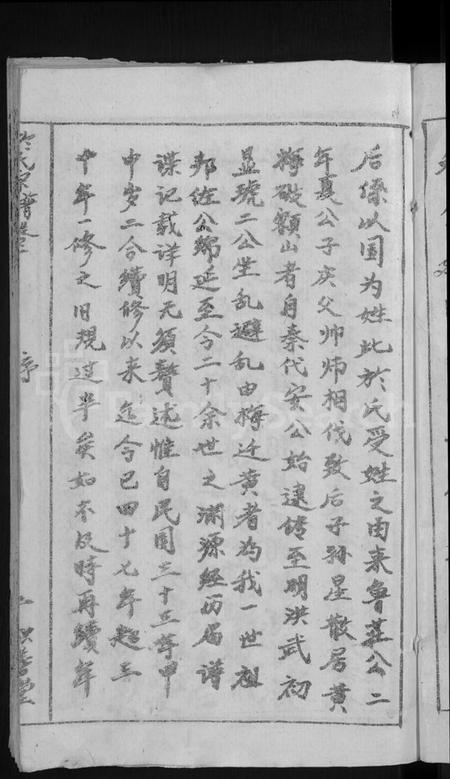 后系以国为姓此於氏受姓之由来鲁莊公二
年夏公子庆父帅师相伐致后子孙星散居黄
梅破额山者自秦代安公始逮传至明洪武初
显琥二公生乱避乱由梅迁黄者为我一世祖
邦佐公绵延至今二十余世之渊源经历届谱
谍记载详明无须赘述惟自民国三十三年甲
申岁二合續修以来迄今已四十七年超三
十年一修之旧规过半矣如不及時再續年
於氏宗譜卷
序
善堂
FamilySearch